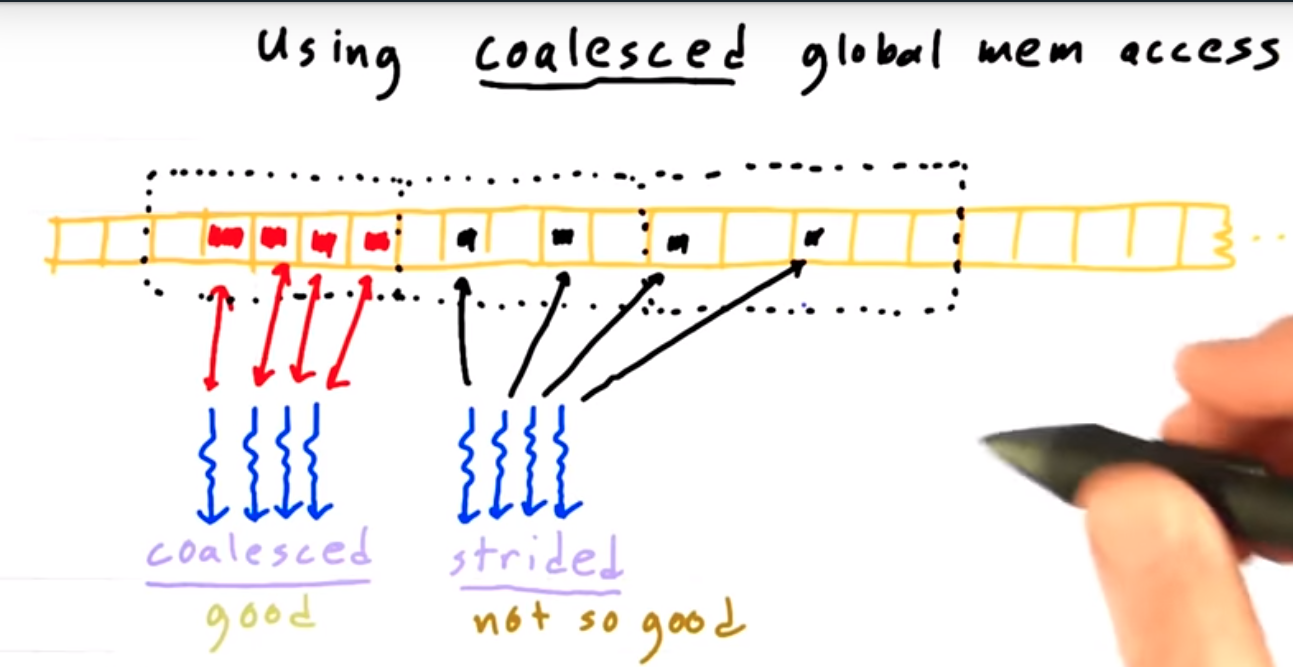 Using coalesced global mem access
coalesced strided
good not so good